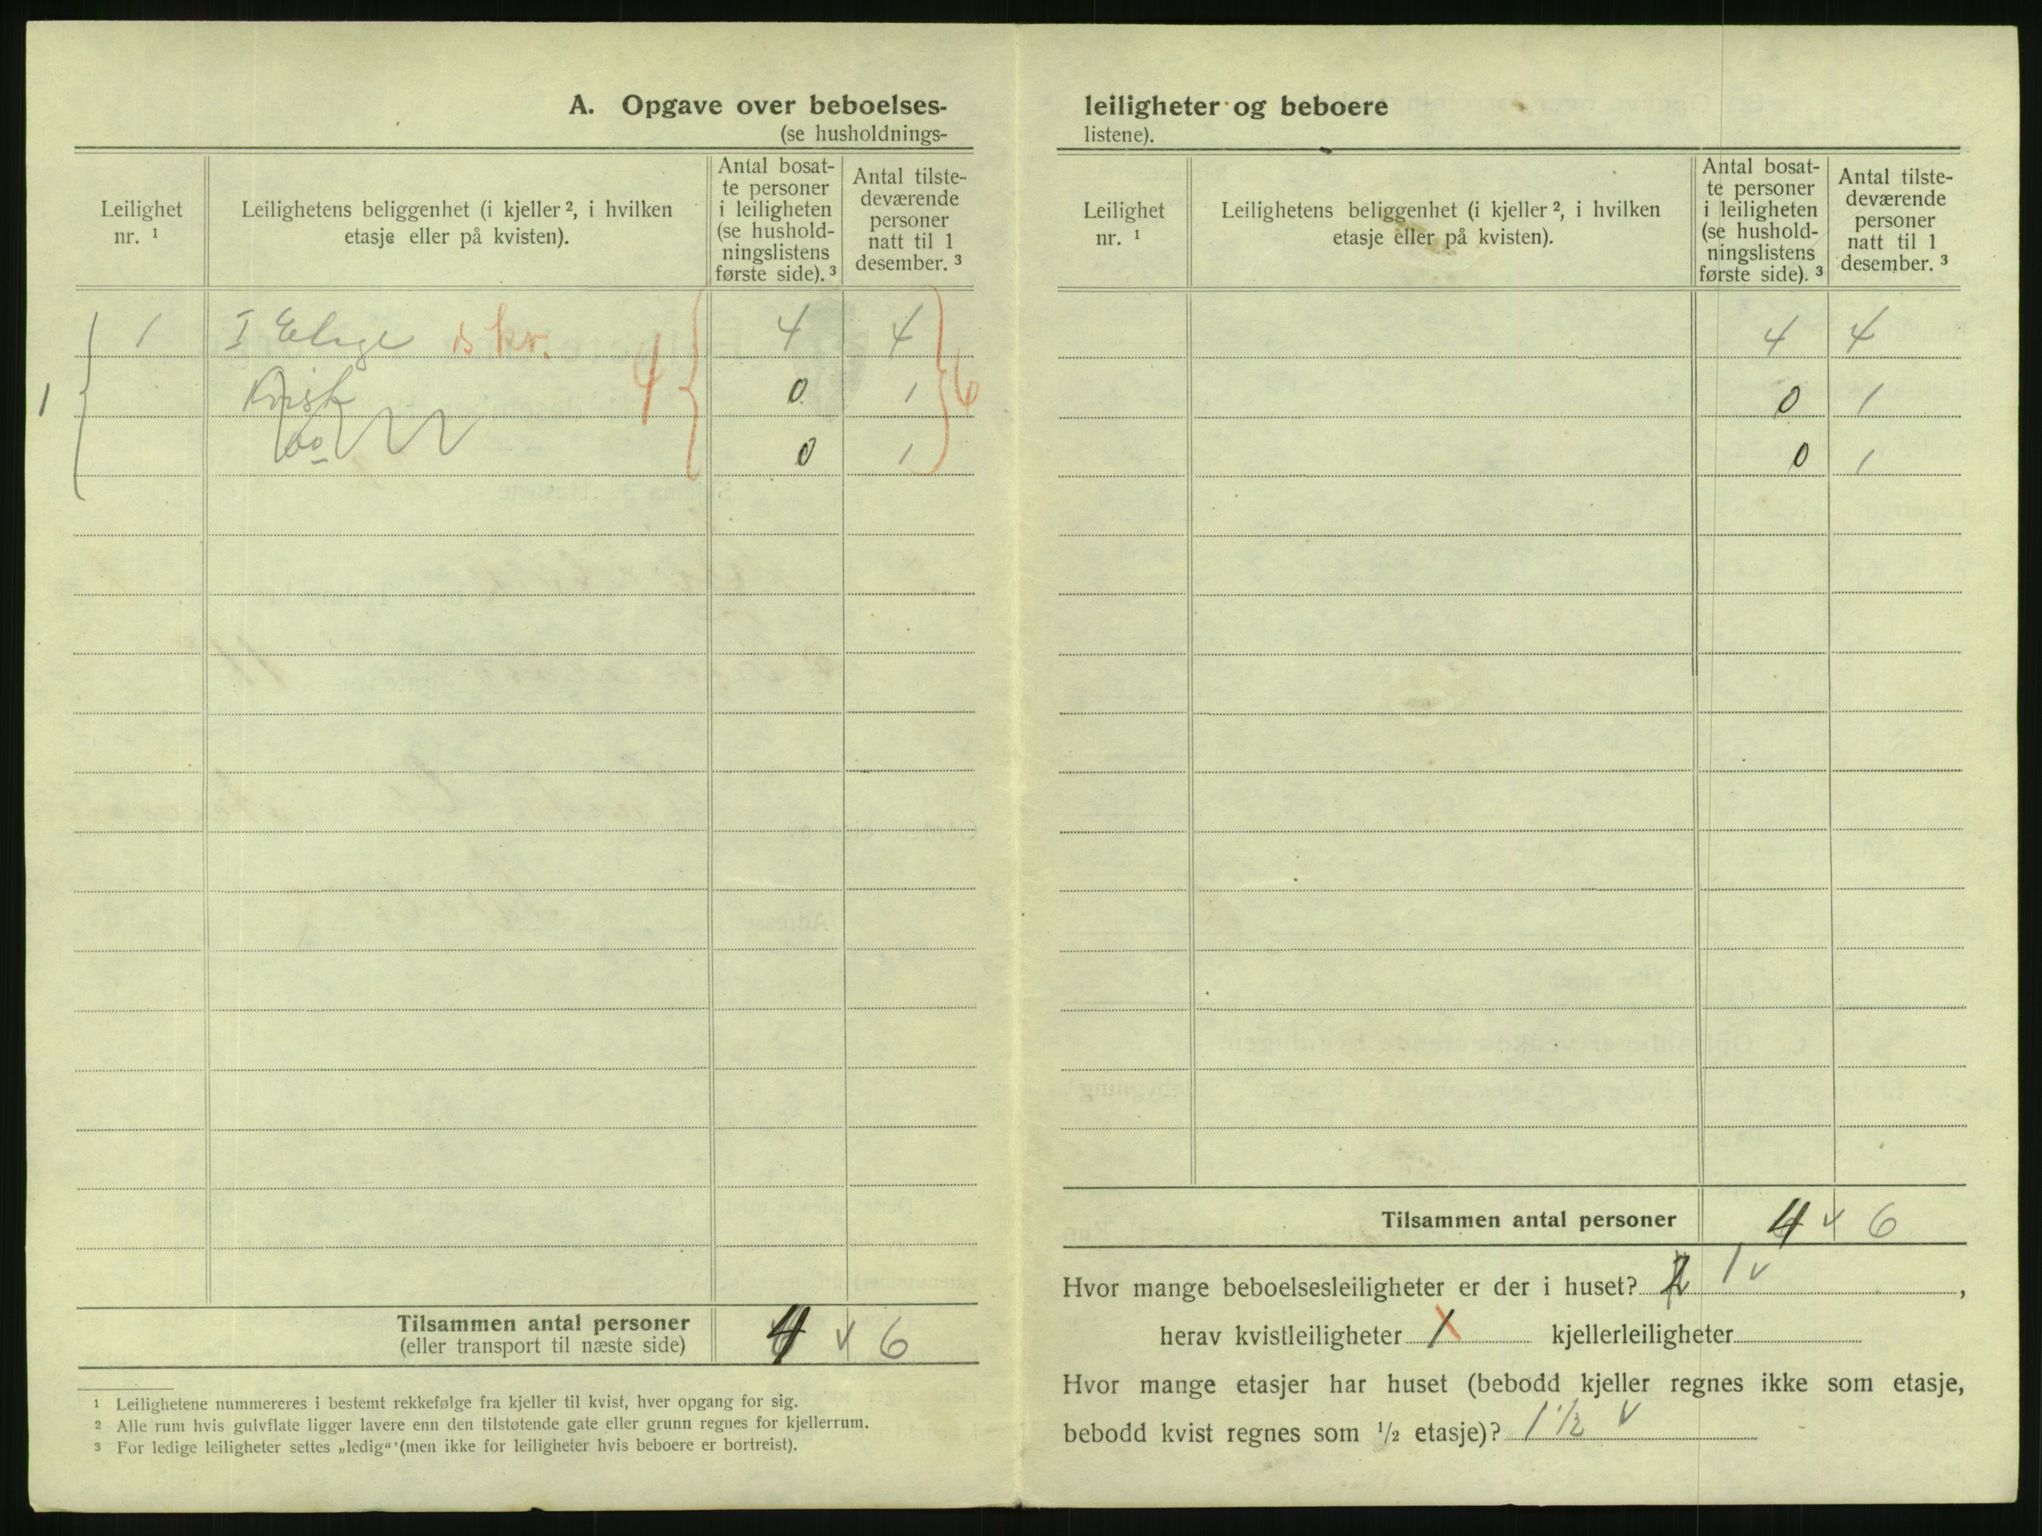 A. Opgave over beboelses-
(se husholdnings-
Leilighet
nr. ¹
Leilighetens beliggenhet (i kjeller ², i hvilken
etasje eller på kvisten).
Antal bosat-
te personer
i leiligheten
(se hushold-
ningslistens
første side). ³
Antal tilste-
deværende
personer
natt til 1
desember. ³
1 I Etage kv. 4 4
1 Kvist 4 0 1 6
do 0 1
Tilsammen antal personer
(eller transport til næste side) 4 v 6
¹ Leilighetene nummereres i bestemt rekkefølge fra kjeller til kvist, hver opgang for sig.
² Alle rum hvis gulvflate ligger lavere enn den tilstøtende gate eller grunn regnes for kjellerrum.
³ For ledige leiligheter settes „ledig“ (men ikke for leiligheter hvis beboere er bortreist).
leiligheter og beboere
listene).
Leilighet
nr. ¹
Leilighetens beliggenhet (i kjeller ², i hvilken
etasje eller på kvisten).
Antal bosat-
te personer
i leiligheten
(se hushold-
ningslistens
første side). ³
Antal tilste-
deværende
personer
natt til 1
desember. ³
4 4
0 1
0 1
Tilsammen antal personer 4 v 6
Hvor mange beboelsesleiligheter er der i huset? 2 1 v ,
herav kvistleiligheter 1 kjellerleiligheter
Hvor mange etasjer har huset (bebodd kjeller regnes ikke som etasje,
bebodd kvist regnes som ½ etasje)? 1 ½ v